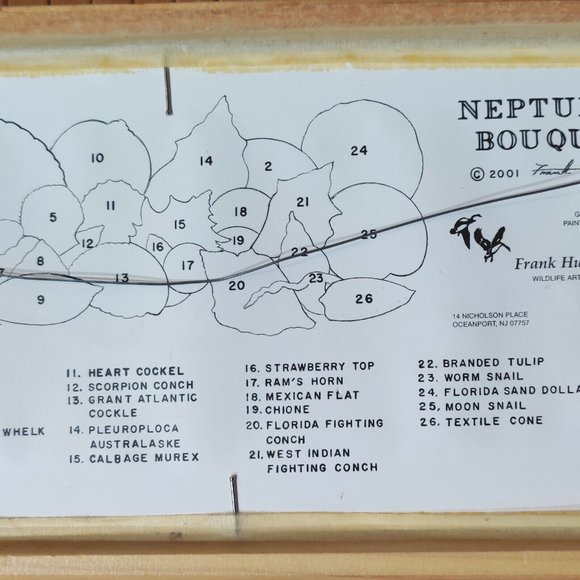 NEPTU
BOUQU
© 2001 Frank
10
14
2
24
5
11
15
18
21
12
16
19
22
25
7
8
13
17
20
23
26
9
G
PAIN
Frank Hu
WILDLIFE ART
14 NICHOLSON PLACE
OCEANPORT, NJ 07757
WHELK
11. HEART COCKEL
12. SCORPION CONCH
13. GRANT ATLANTIC
COCKLE
14. PLEUROPLOCA
AUSTRALASKE
15. CALBAGE MUREX
16. STRAWBERRY TOP
17. RAM'S HORN
18. MEXICAN FLAT
19. CHIONE
20. FLORIDA FIGHTING
CONCH
21. WEST INDIAN
FIGHTING CONCH
22. BRANDED TULIP
23. WORM SNAIL
24. FLORIDA SAND DOLLA
25, MOON SNAIL
26. TEXTILE CONE